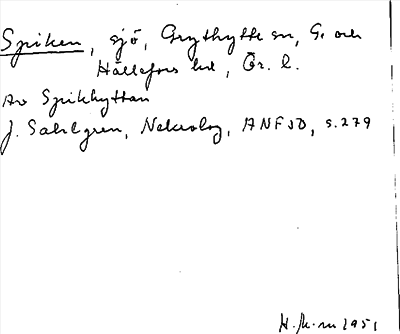 Spiken, sjö, Grythytte sn, G. och
Hällefors hd, Ör. l.
Av Spikhyttan
J. Sahlgren, Nekrolog, ANF 50, s. 279
H. M-m 1951